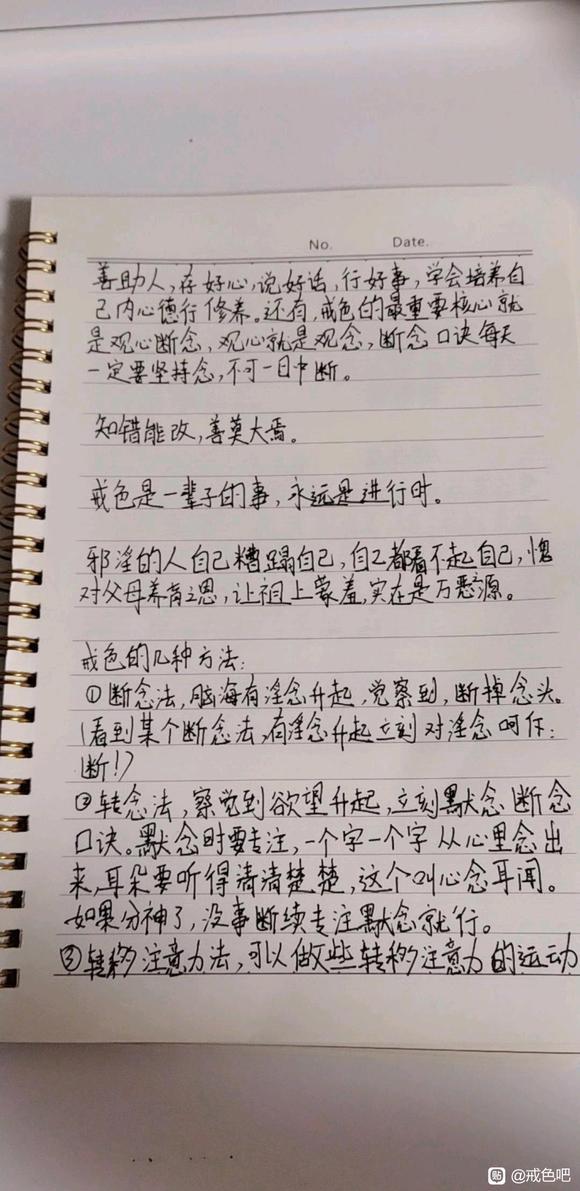 No. Date.
善助人,存好心,说好话,行好事,学会培养自
己内心德行修养。还有,戒色的最重要核心就
是观心断念,观心就是观念,断念口诀每天
一定要坚持念,不可一日中断。
知错能改,善莫大焉。
戒色是一辈子的事,永远是进行时。
邪淫的人自己糟蹋自己,自己都看不起自己,愧
对父母养育之恩,让祖上蒙羞,实在是万恶源。
戒色的几种方法:
①断念法,脑海有淫念升起,觉察到,断掉念头。
(看到某个断念法,有淫念升起立刻对淫念呵斥:
断!)
②转念法,察觉到欲望升起,立刻默念断念
口诀。默念时要专注,一个字一个字从心里念出
来,耳朵要听得清清楚楚,这个叫心念耳闻。
如果分神了,没事断续专注默念就行。
③转移注意力法,可以做些转移注意力的运动
贴 @戒色吧